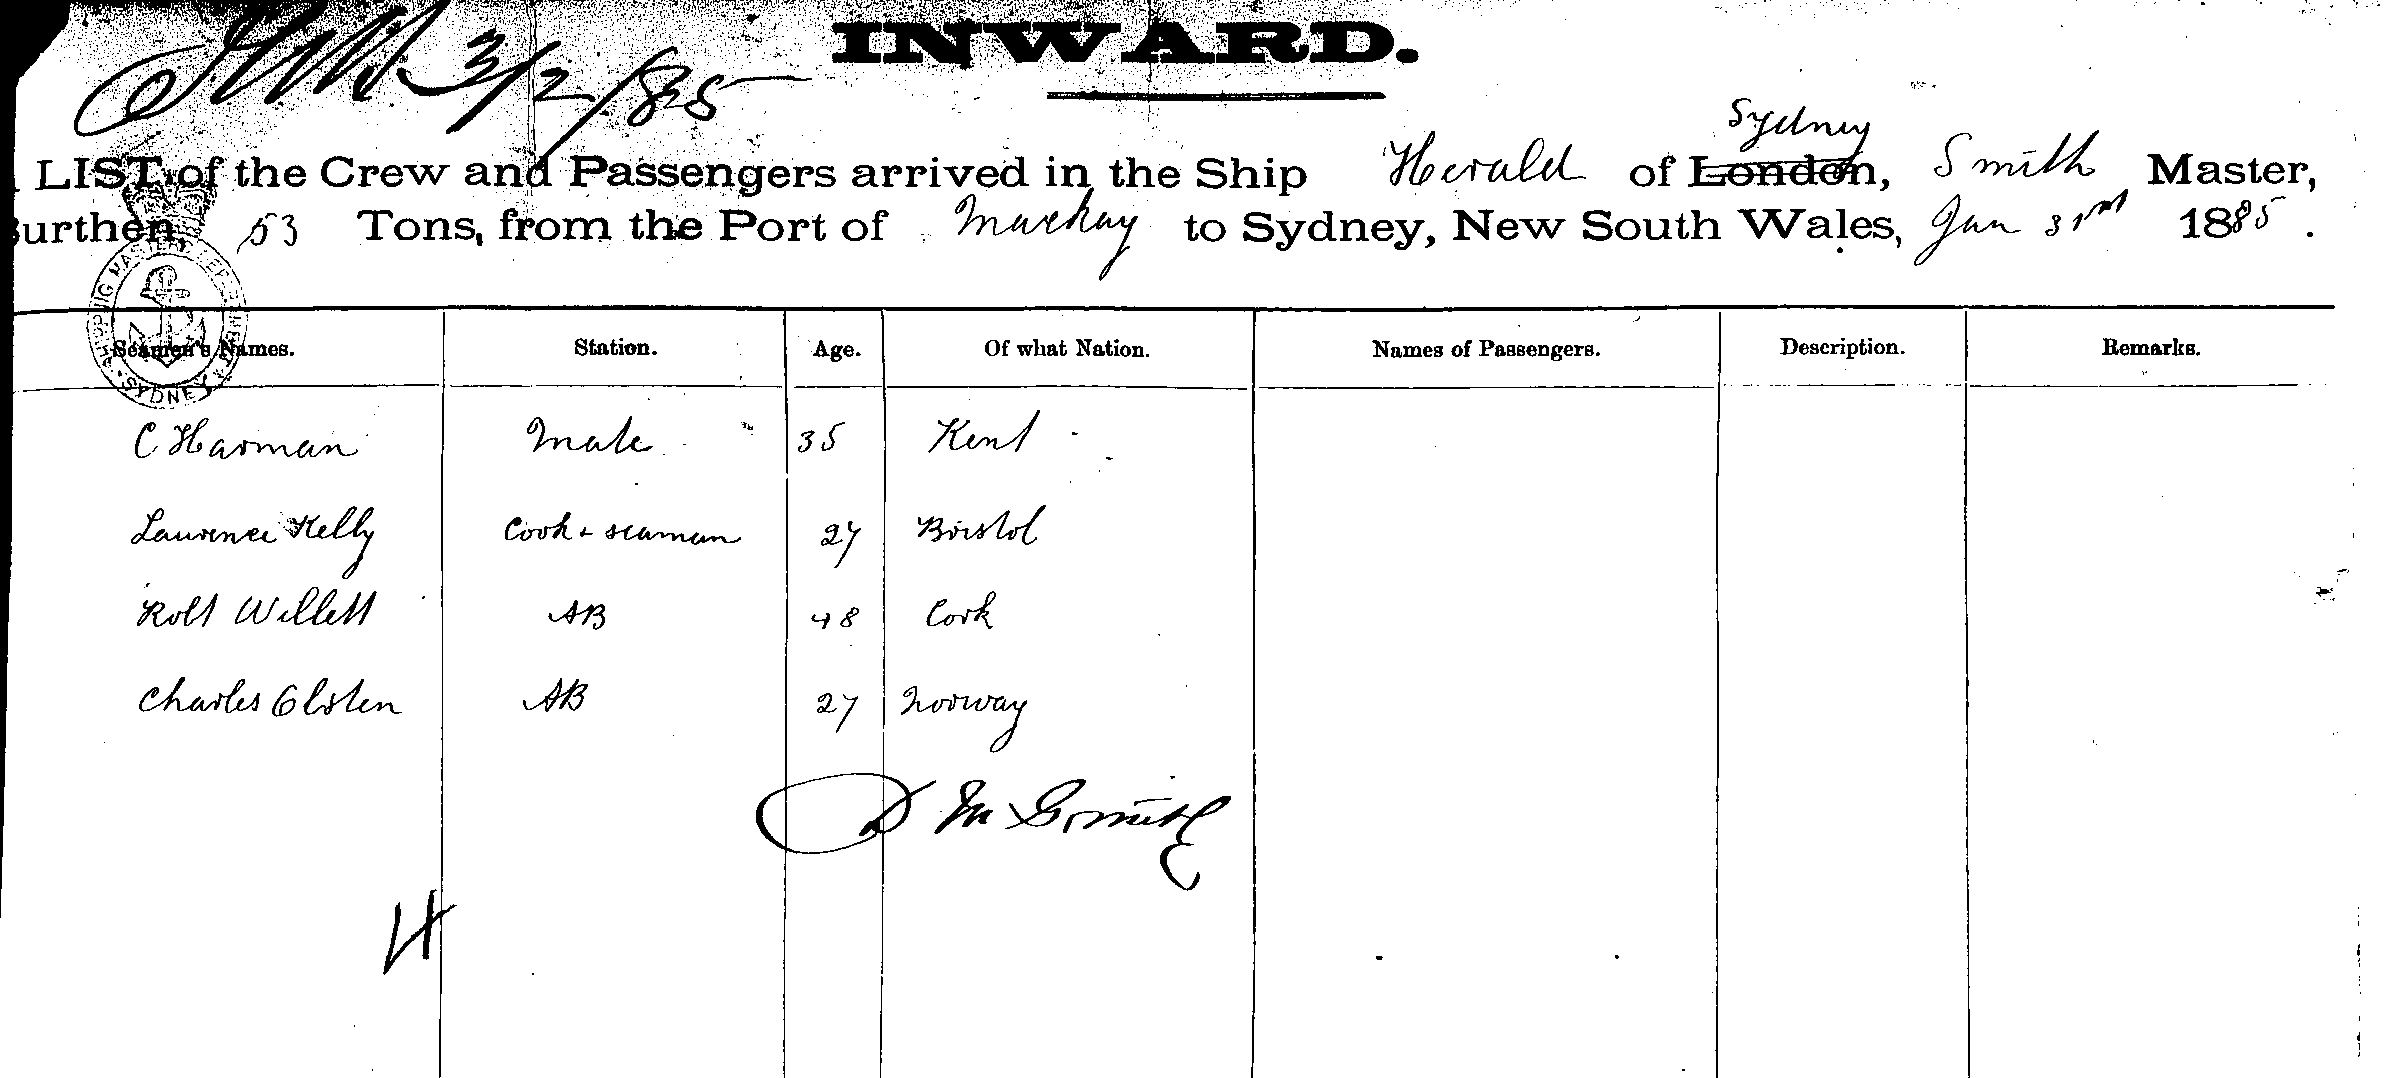 3/2/85
INWARD.
Sydney
LIST of the Crew and Passengers arrived in the Ship Herald of London, Smith Master,
Burthen, 53 Tons, from the Port of Mackay to Sydney, New South Wales, Jan 31st 1885.
Seamen's Names. Station. Age. Of what Nation. Names of Passengers. Description. Remarks.
SYDNEY
C Harman Mate 35 Kent
Laurence Kelly Cook + seaman 27 Bristol
Robt Willett AB 48 Cork
Charles Olsten AB 27 Norway
D M Smith
4